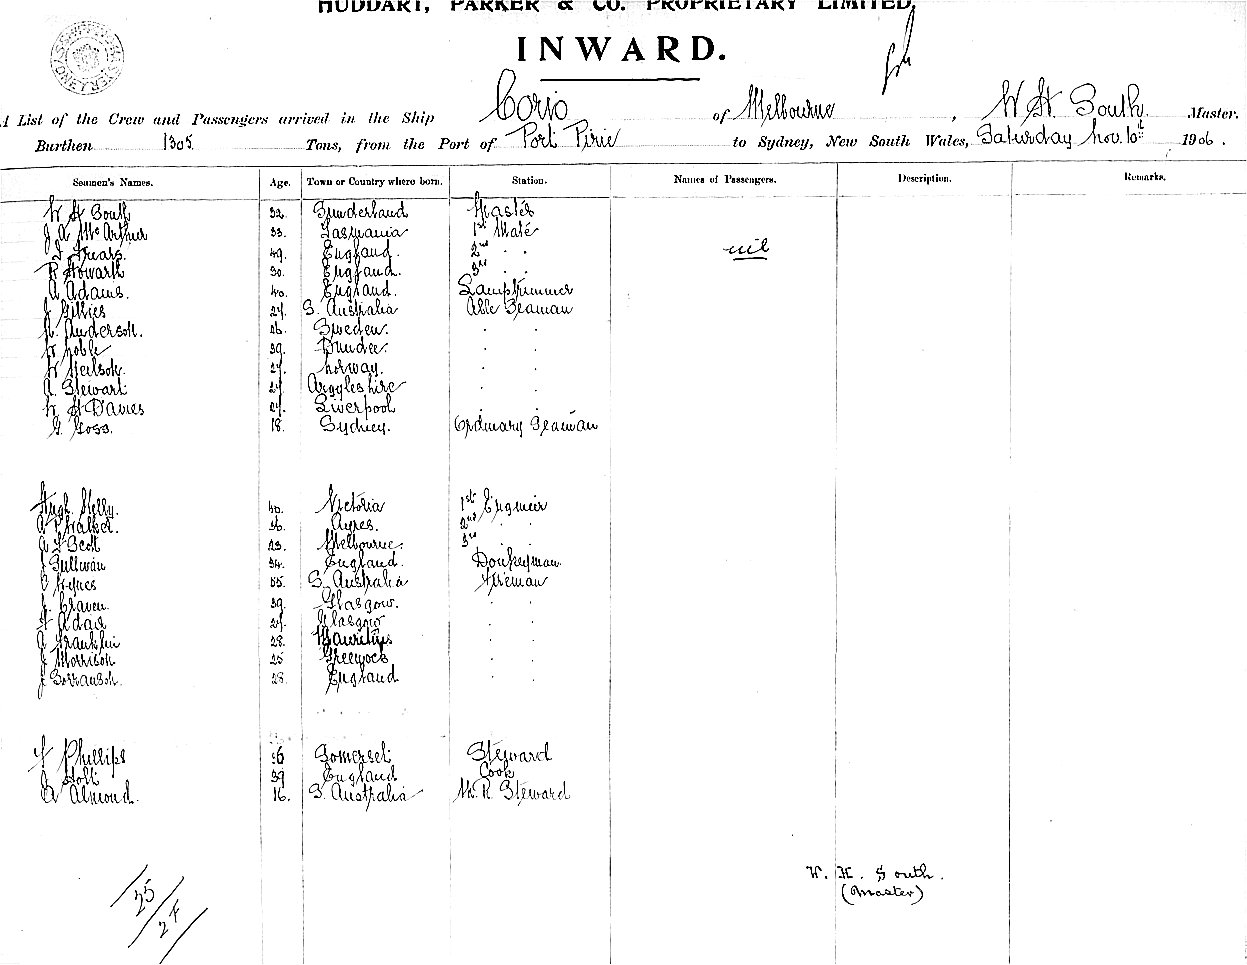 HUDDART, PARKER & CO. PROPRIETARY LIMITED.
INWARD.
A List of the Crew and Passengers arrived in the Ship Corio of Melbourne, W H South Master.
Burthen 1305 Tons, from the Port of Port Pirie to Sydney, New South Wales, Saturday Nov. 10th 1906.
Seamen's Names. Age. Town or Country where born. Station. Names of Passengers. Description. Remarks.
W H South 32 Sunderland Master
J A McArthur 33. Tasmania 1st Mate
49. England. 2nd " " nil
R Howarth 30. England. 3rd " "
A Adams. 40. England. Lamptrimmer
J Gillies 24. S. Australia Able Seaman
Anderson. 26. Sweden. " "
Noble 39. Dundee. " "
W Neilson. 24. Norway. " "
A. Stewart 24. Argyleshire " "
W H Davies 24. Liverpool " "
G. Goss. 18. Sydney. Ordinary Seaman
Hugh Kelly. 40. Victoria 1st Engineer
36. Ayres. 2nd "
Scott 23. Melbourne. 3rd "
J Sullivan 34. England. Donkeyman
Hynes 35. S. Australia Fireman
J. Craven. 39. Glasgow. " "
Adair 24. Glasgow " "
A Franklin 28. Mauritius " "
J Morrison 25 Greenock " "
J Sorranson. 28. England " "
Phillips 36 Somerset Steward
Holt 39 England Cook
A Almond. 16. S. Australia M. R. Steward
W. H. South.
(Master)
25
24